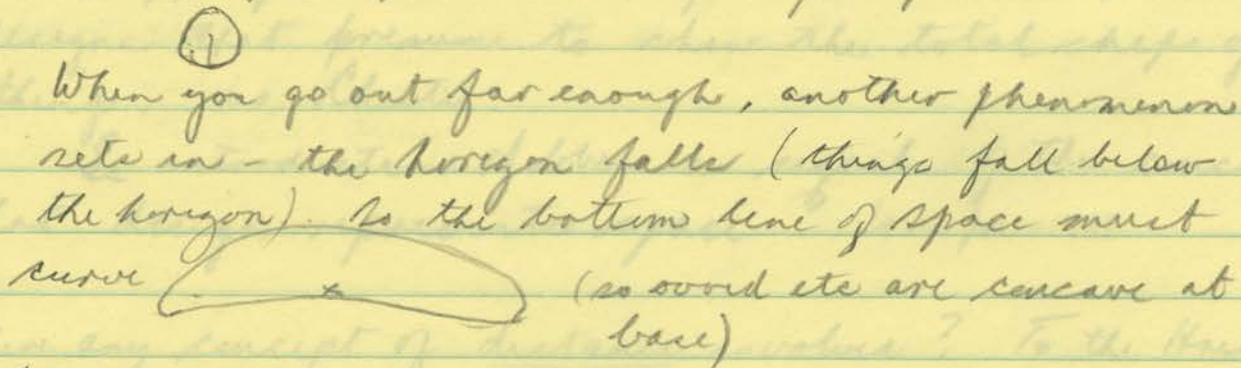 1
When you go out far enough, another phenomenon
sets in - the horizon falls (things fall below
the horizon). So the bottom line of space must
curve (so ovoid etc are concave at
base)